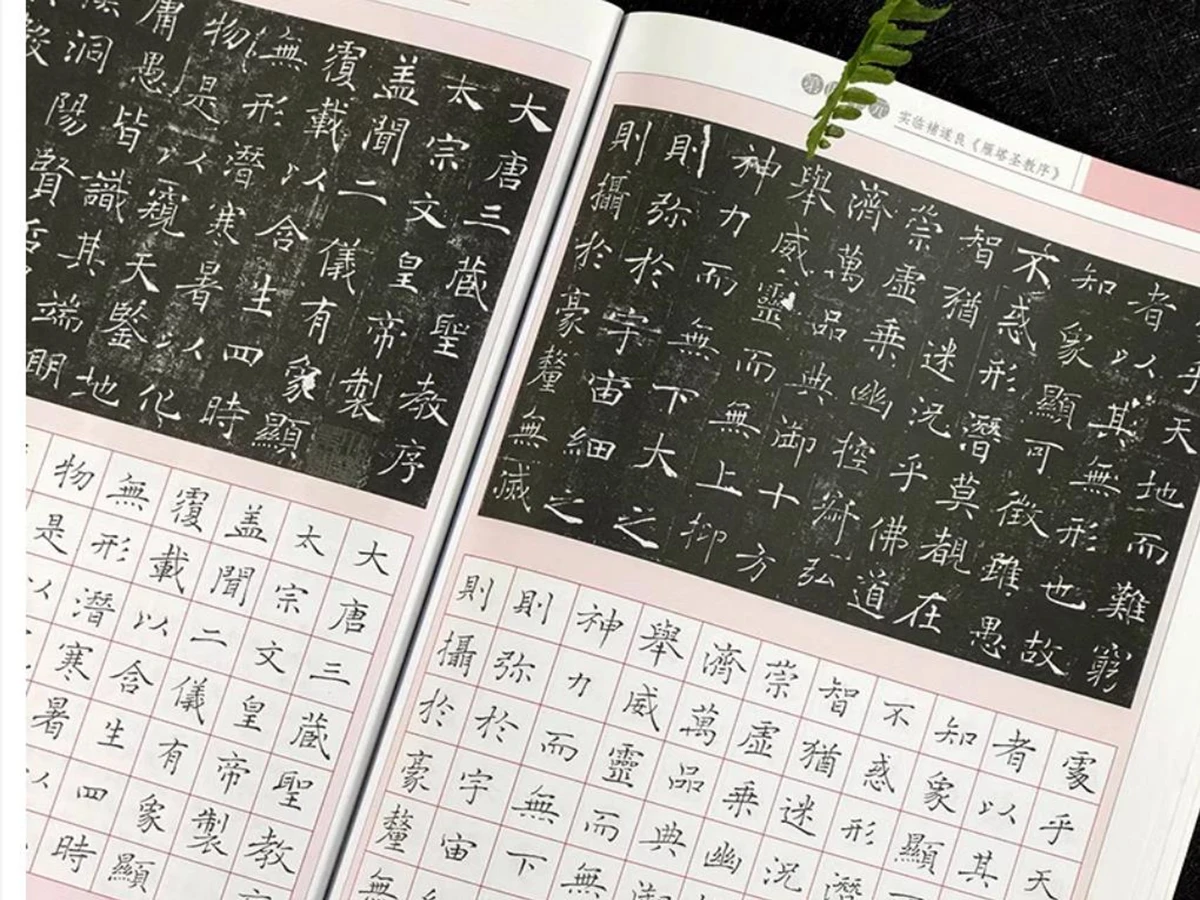 大唐三藏聖教序
太宗文皇帝製
盖聞二儀有象顯
覆載以含生四時
無形潛寒暑以化
物是以窺天鑒地
庸愚皆識其端明
洞陽賢哲
大唐三藏聖教
太宗文皇帝製
盖聞二儀有象顯
覆載以含生四時
無形潛寒暑以
物是以
实临褚遂良《雁塔圣教序》
乎天地而難窮
者以其無形也故
知象顯可徵雖愚
不惑形潛莫覩在
智猶迷況乎佛道
崇虛乘幽控寂弘
濟萬品典御十方
舉威靈而無上抑
神力而無下大之
則弥於宇宙細之
則攝於豪釐無滅
處乎天
者以其
知象顯
不惑形潛
智猶迷況
崇虛乘幽
濟萬品典御
舉威靈而無
神力而無下
則弥於宇宙
則攝於豪釐無